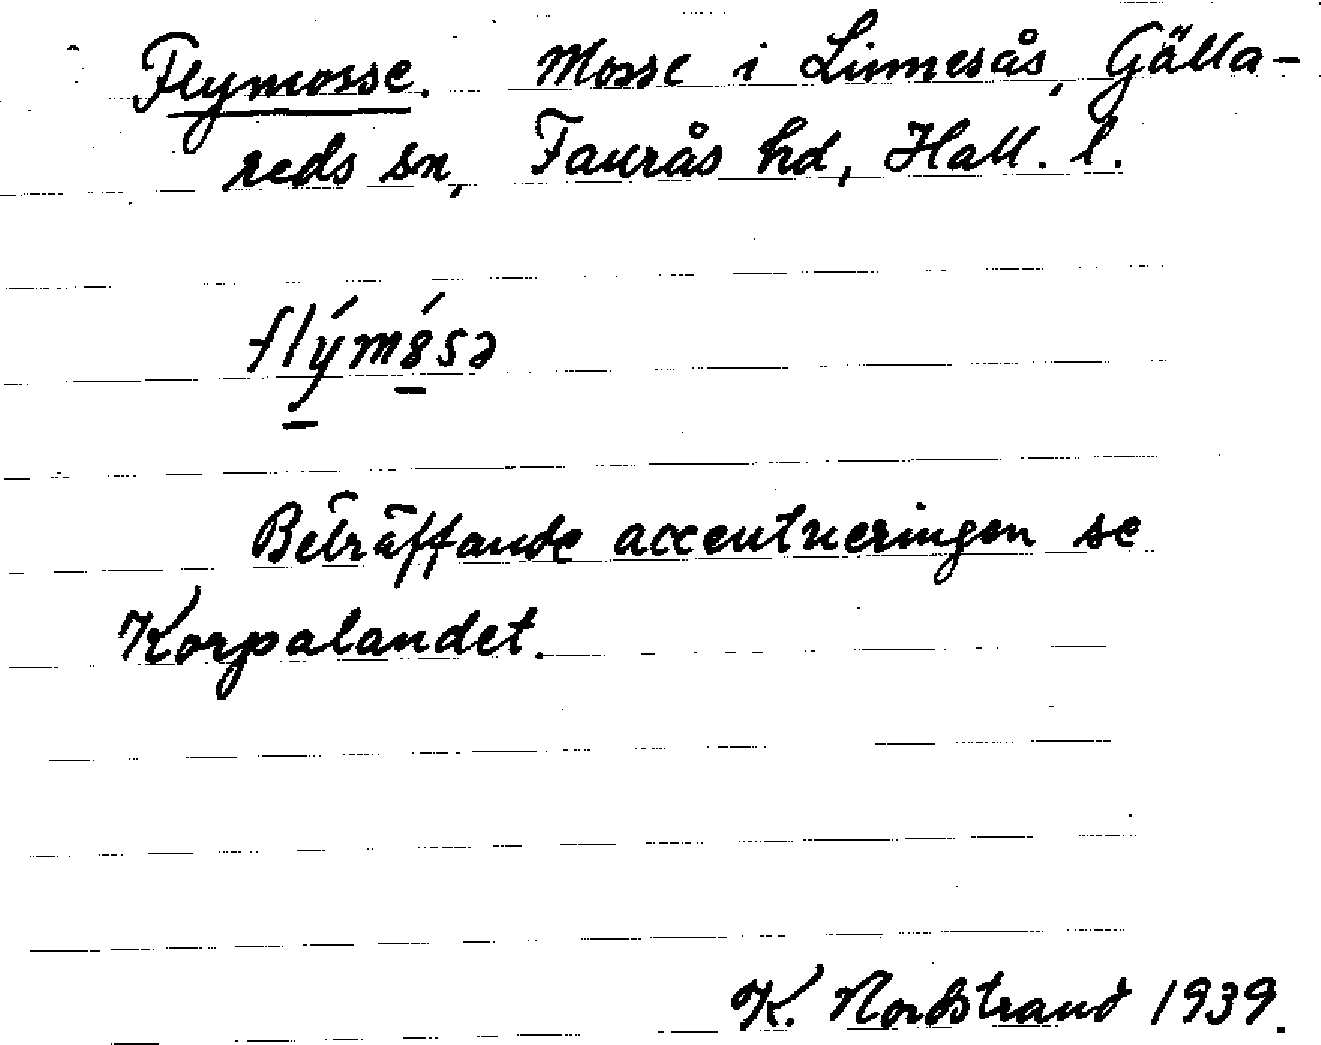 Flymosse. Mosse i Linnesås, Gälla-
reds sn, Faurås hd, Hall. l.
flýmó̱sə
Beträffande accentueringen se
Korpalandet.
K. Nordstrand 1939.